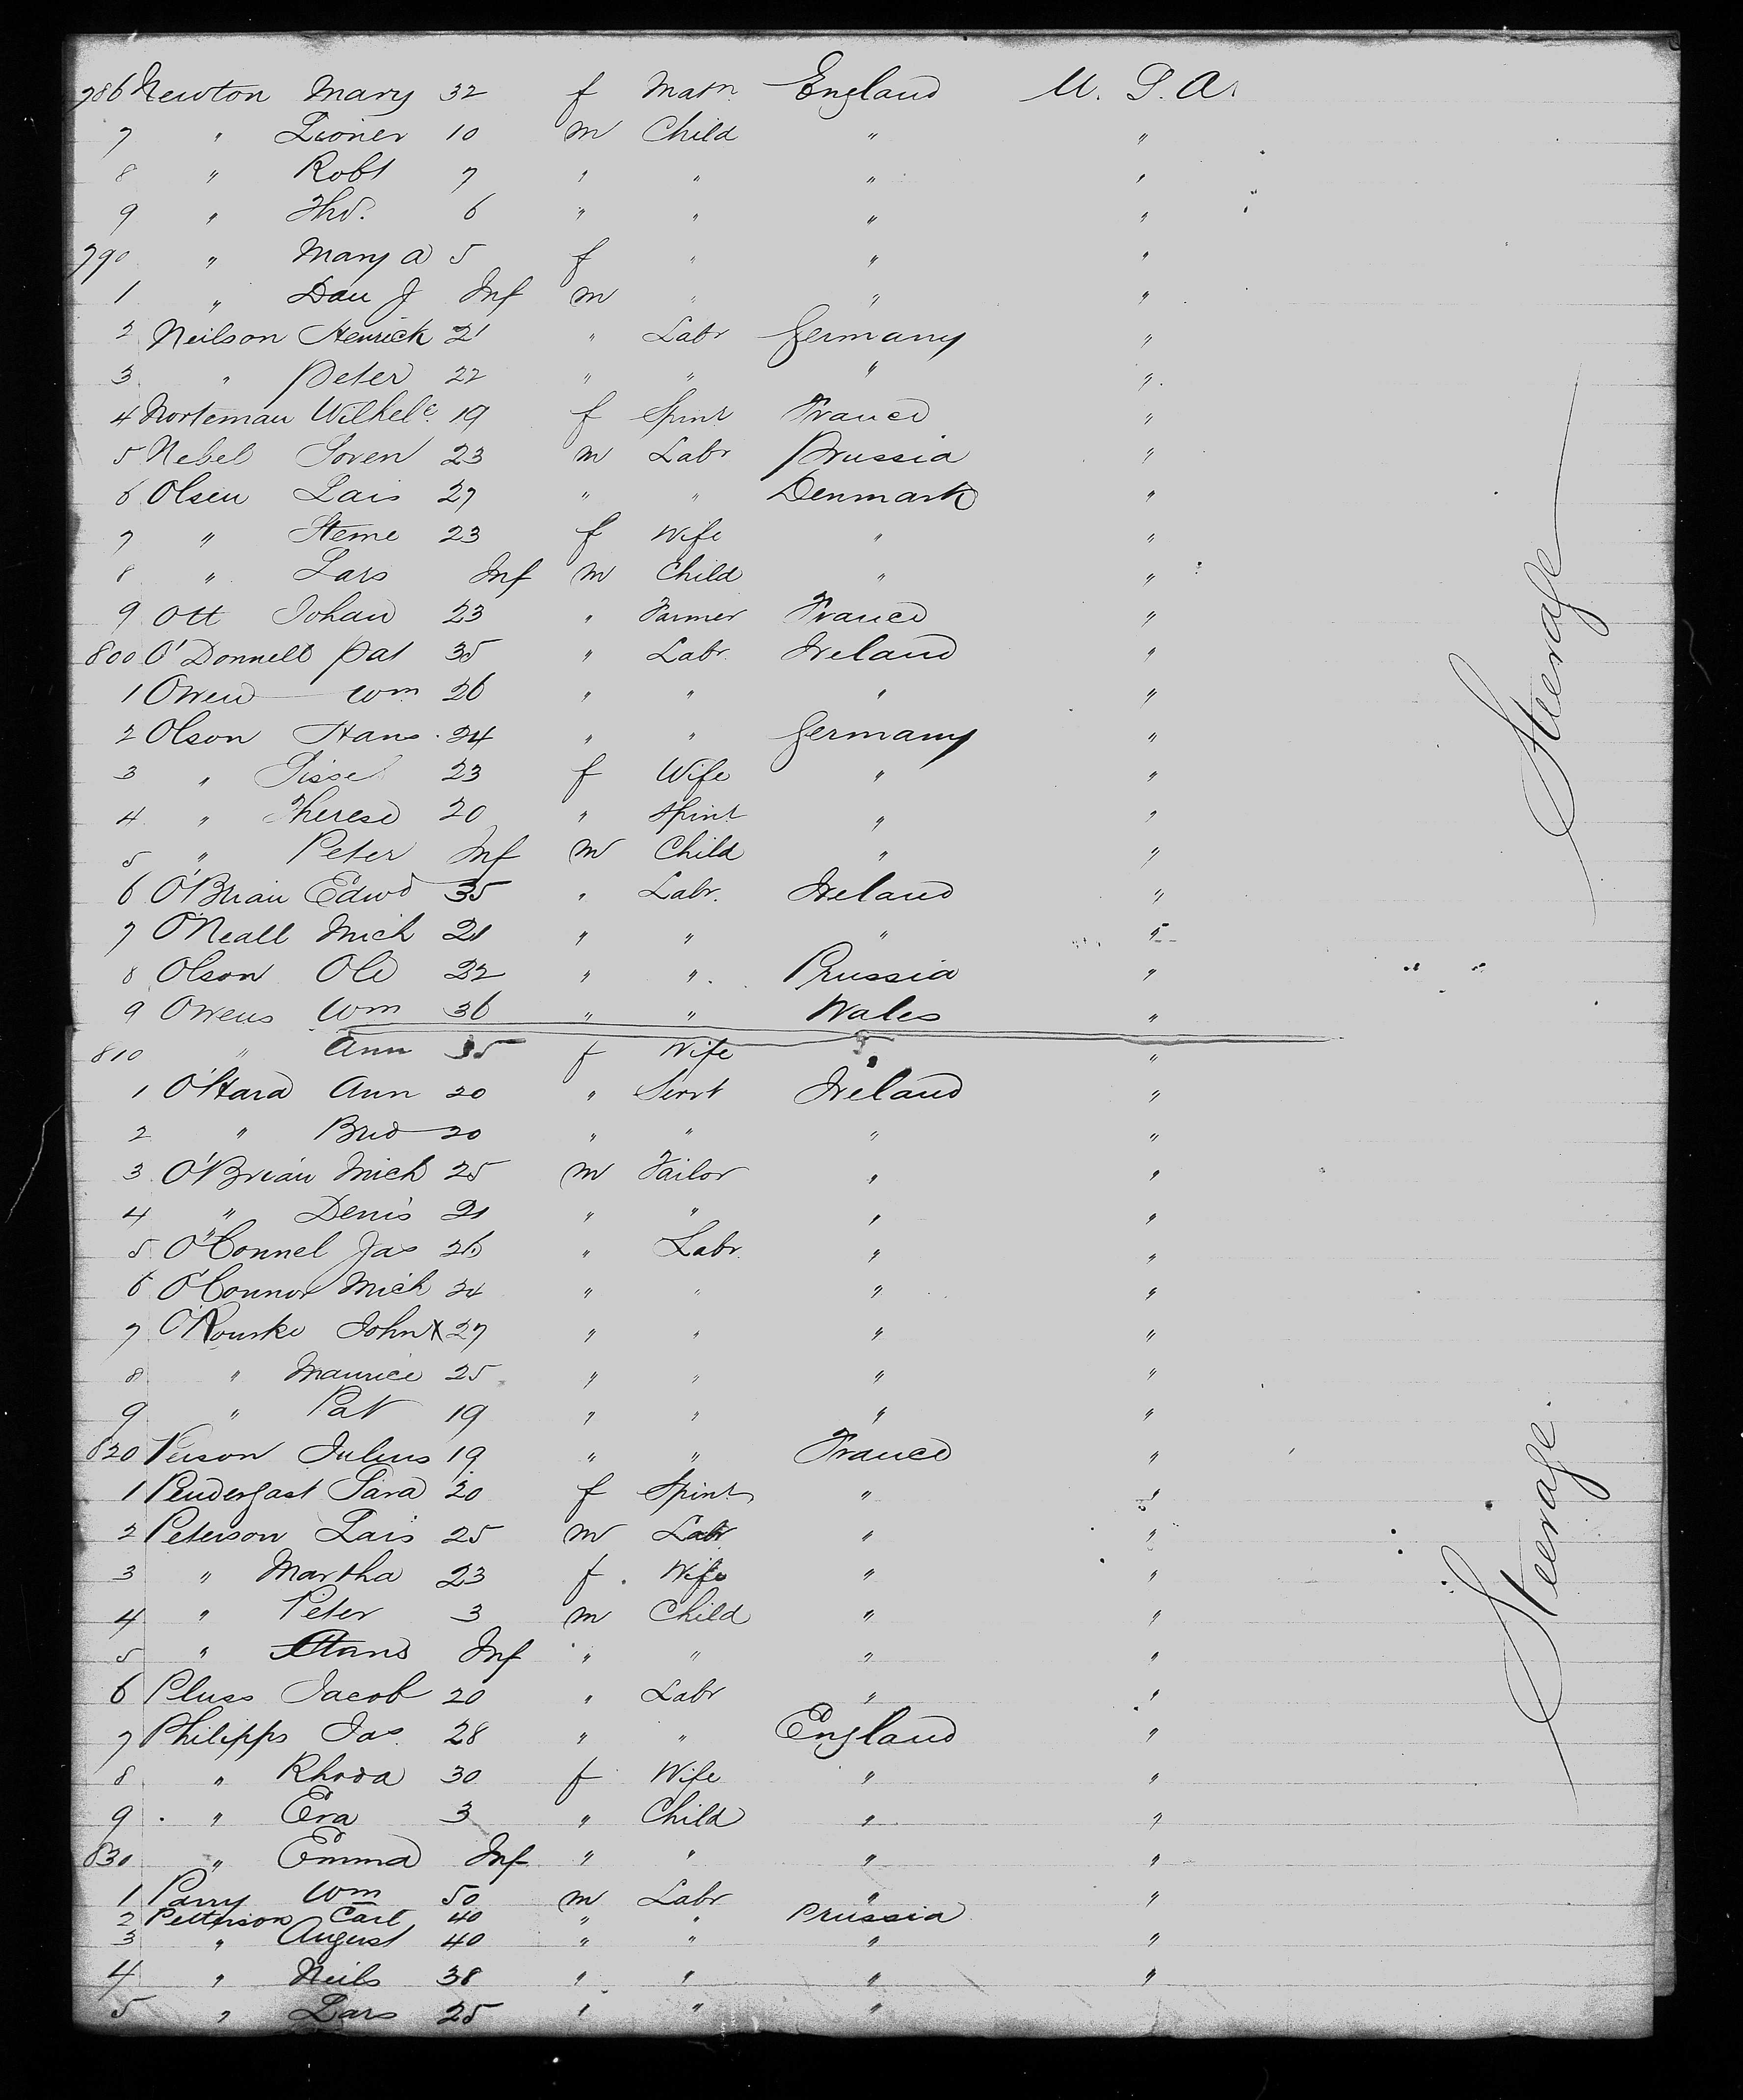 786 Newton Mary 32 f Matn England U. S. A.
7 " Lioner 10 m Child " "
8 " Robt 7 " " " "
9 " Tho. 6 " " " "
790 " Mary A 5 f " " "
1 " Dan J Inf m " " "
2 Neilson Henrick 21 " Labr Germany "
3 " Peter 22 " " " "
4 Norteman Wilhele. 19 f Spinr France "
5 Nebel Soren 23 m Labr Prussia "
6 Olsen Lais 27 " " Denmark "
7 " Steme 23 f Wife " "
8 " Lars Inf m Child " "
9 Ott Johan 23 " Farmer France "
800 O'Donnell Pat 35 " Labr. Ireland "
1 Owen Wm 26 " " " "
2 Olson Hans 24 " " Germany "
3 " Sissel 23 f Wife " "
4 " Therese 20 " Spinr " "
5 " Peter Inf m Child " "
6 O'Brian Edwd 35 " Labr. Ireland "
7 O'Neall Mich 21 " " " "
8 Olson Ole 22 " " Prussia "
9 Owens Wm 36 " " Wales "
810 " Ann 35 f Wife " "
1 O'Hara Ann 20 " Servt Ireland "
2 " Brid 20 " " " "
3 O'Brian Mich 25 m Tailor " "
4 " Denis 21 " " " "
5 O'Connel Jas 26 " Labr. " "
6 O'Connor Mich 24 " " " "
7 O'Rourke John X 27 " " " "
8 " Maurice 25 " " " "
9 " Pat 19 " " " "
820 Person Julius 19 " " France "
1 Pendergast Sara 20 f Spinr " "
2 Peterson Lais 25 m Labr " "
3 " Martha 23 f Wife " "
4 " Peter 3 m Child " "
5 " Hans Inf " " " "
6 Pluss Jacob 20 " Labr " "
7 Philipps Jas. 28 " " England "
8 " Rhoda 30 f Wife " "
9 " Eva 3 " Child " "
830 " Emma Inf " " " "
1 Parry Wm 50 m Labr " "
2 Petterson Carl 40 " " Prussia
3 " August 40 " " " "
4 " Neils 38 " " " "
5 " Lars 25 " " "
Steerage
Steerage.